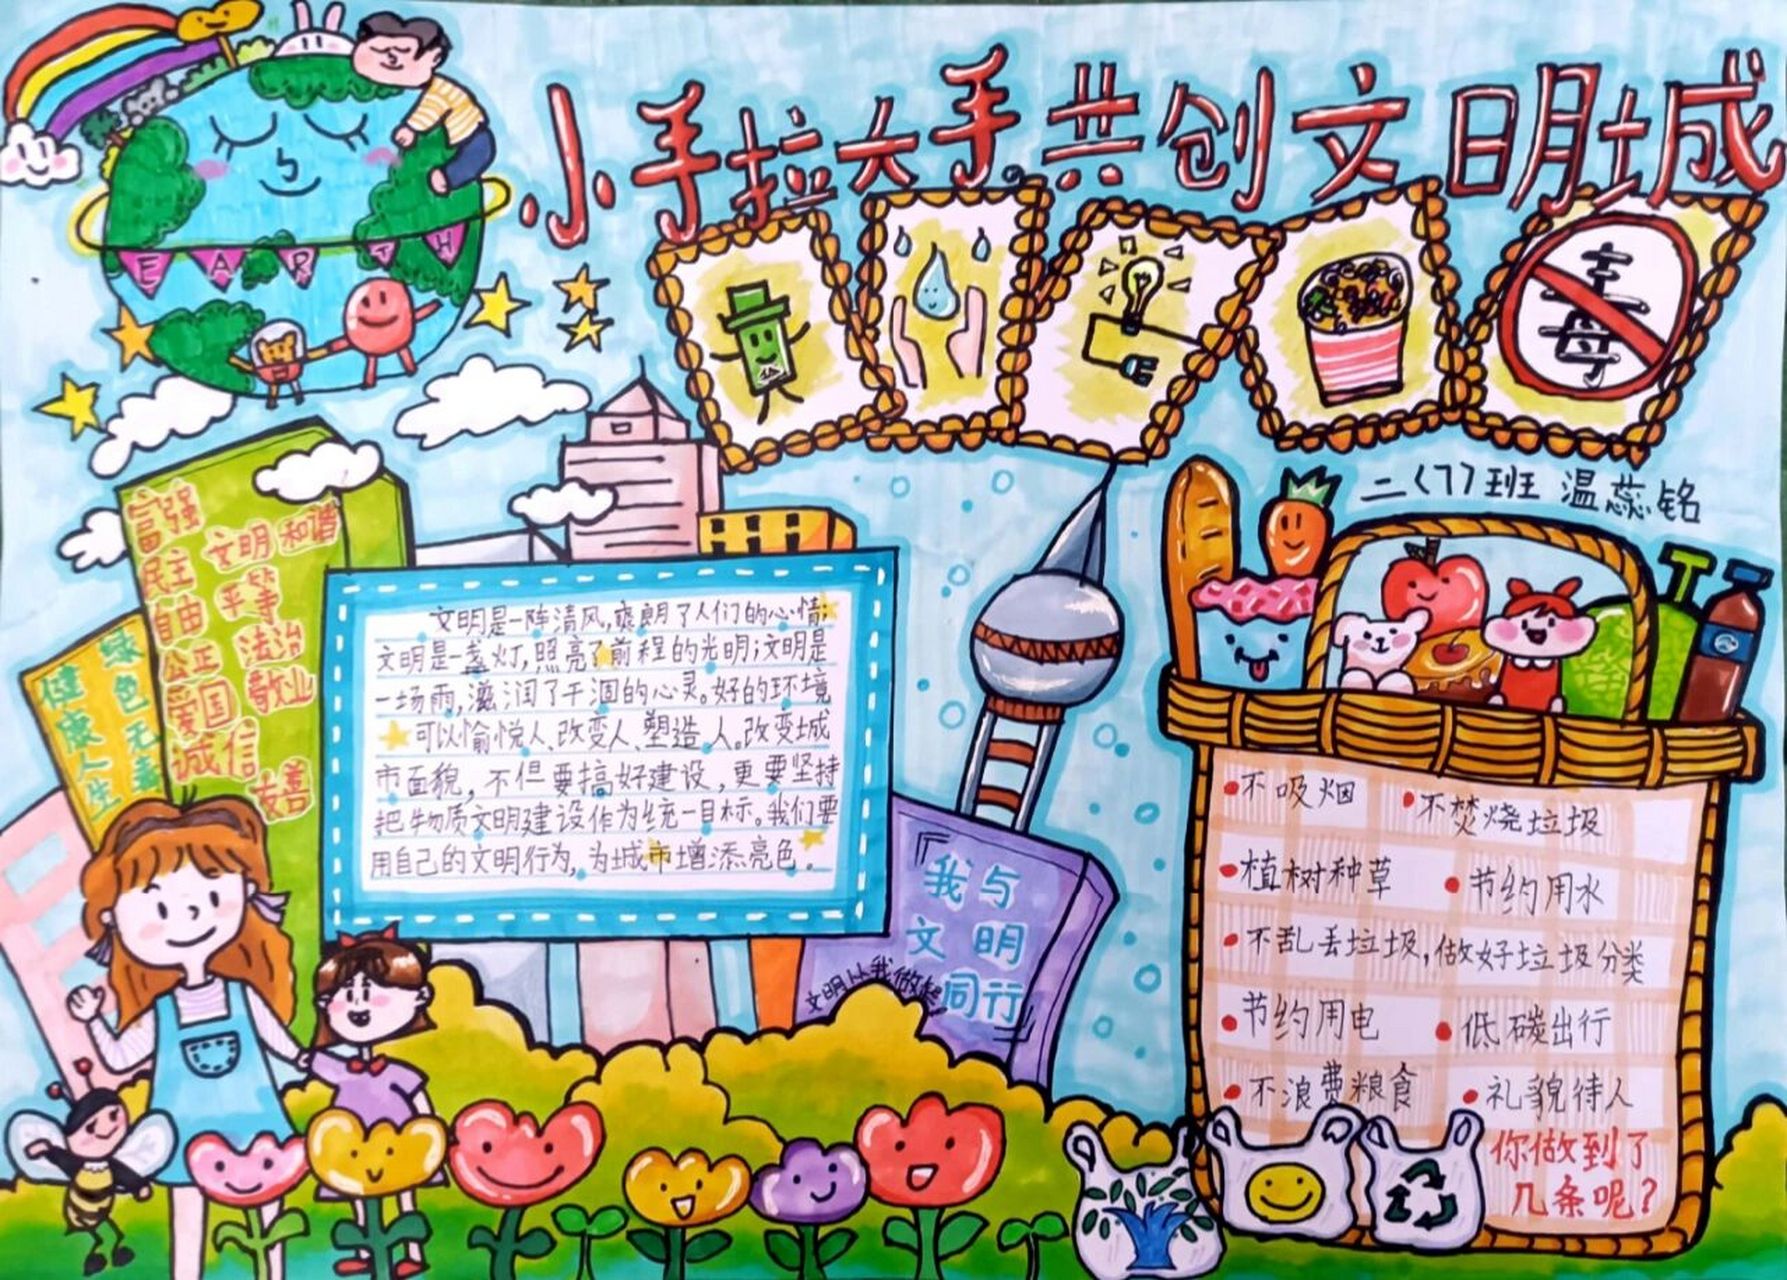 小手拉大手共创文明城
EARTH
毒
二(7)班 温蕊铭
富强
民主
文明 和谐
自由
平等
公正
法治
爱国
敬业
诚信
友善
绿色无毒
健康人生
文明是一阵清风,爽朗了人们的心情;
文明是一盏灯,照亮了前程的光明;文明是
一场雨,滋润了干涸的心灵。好的环境
可以愉悦人、改变人、塑造人。改变城
市面貌,不但要搞好建设,更要坚持
把物质文明建设作为统一目标。我们要
用自己的文明行为,为城市增添亮色。
『我与
文明
同行』
文明从我做起
不吸烟
不焚烧垃圾
植树种草
节约用水
不乱丢垃圾,做好垃圾分类
节约用电
低碳出行
不浪费粮食
礼貌待人
你做到了
几条呢?